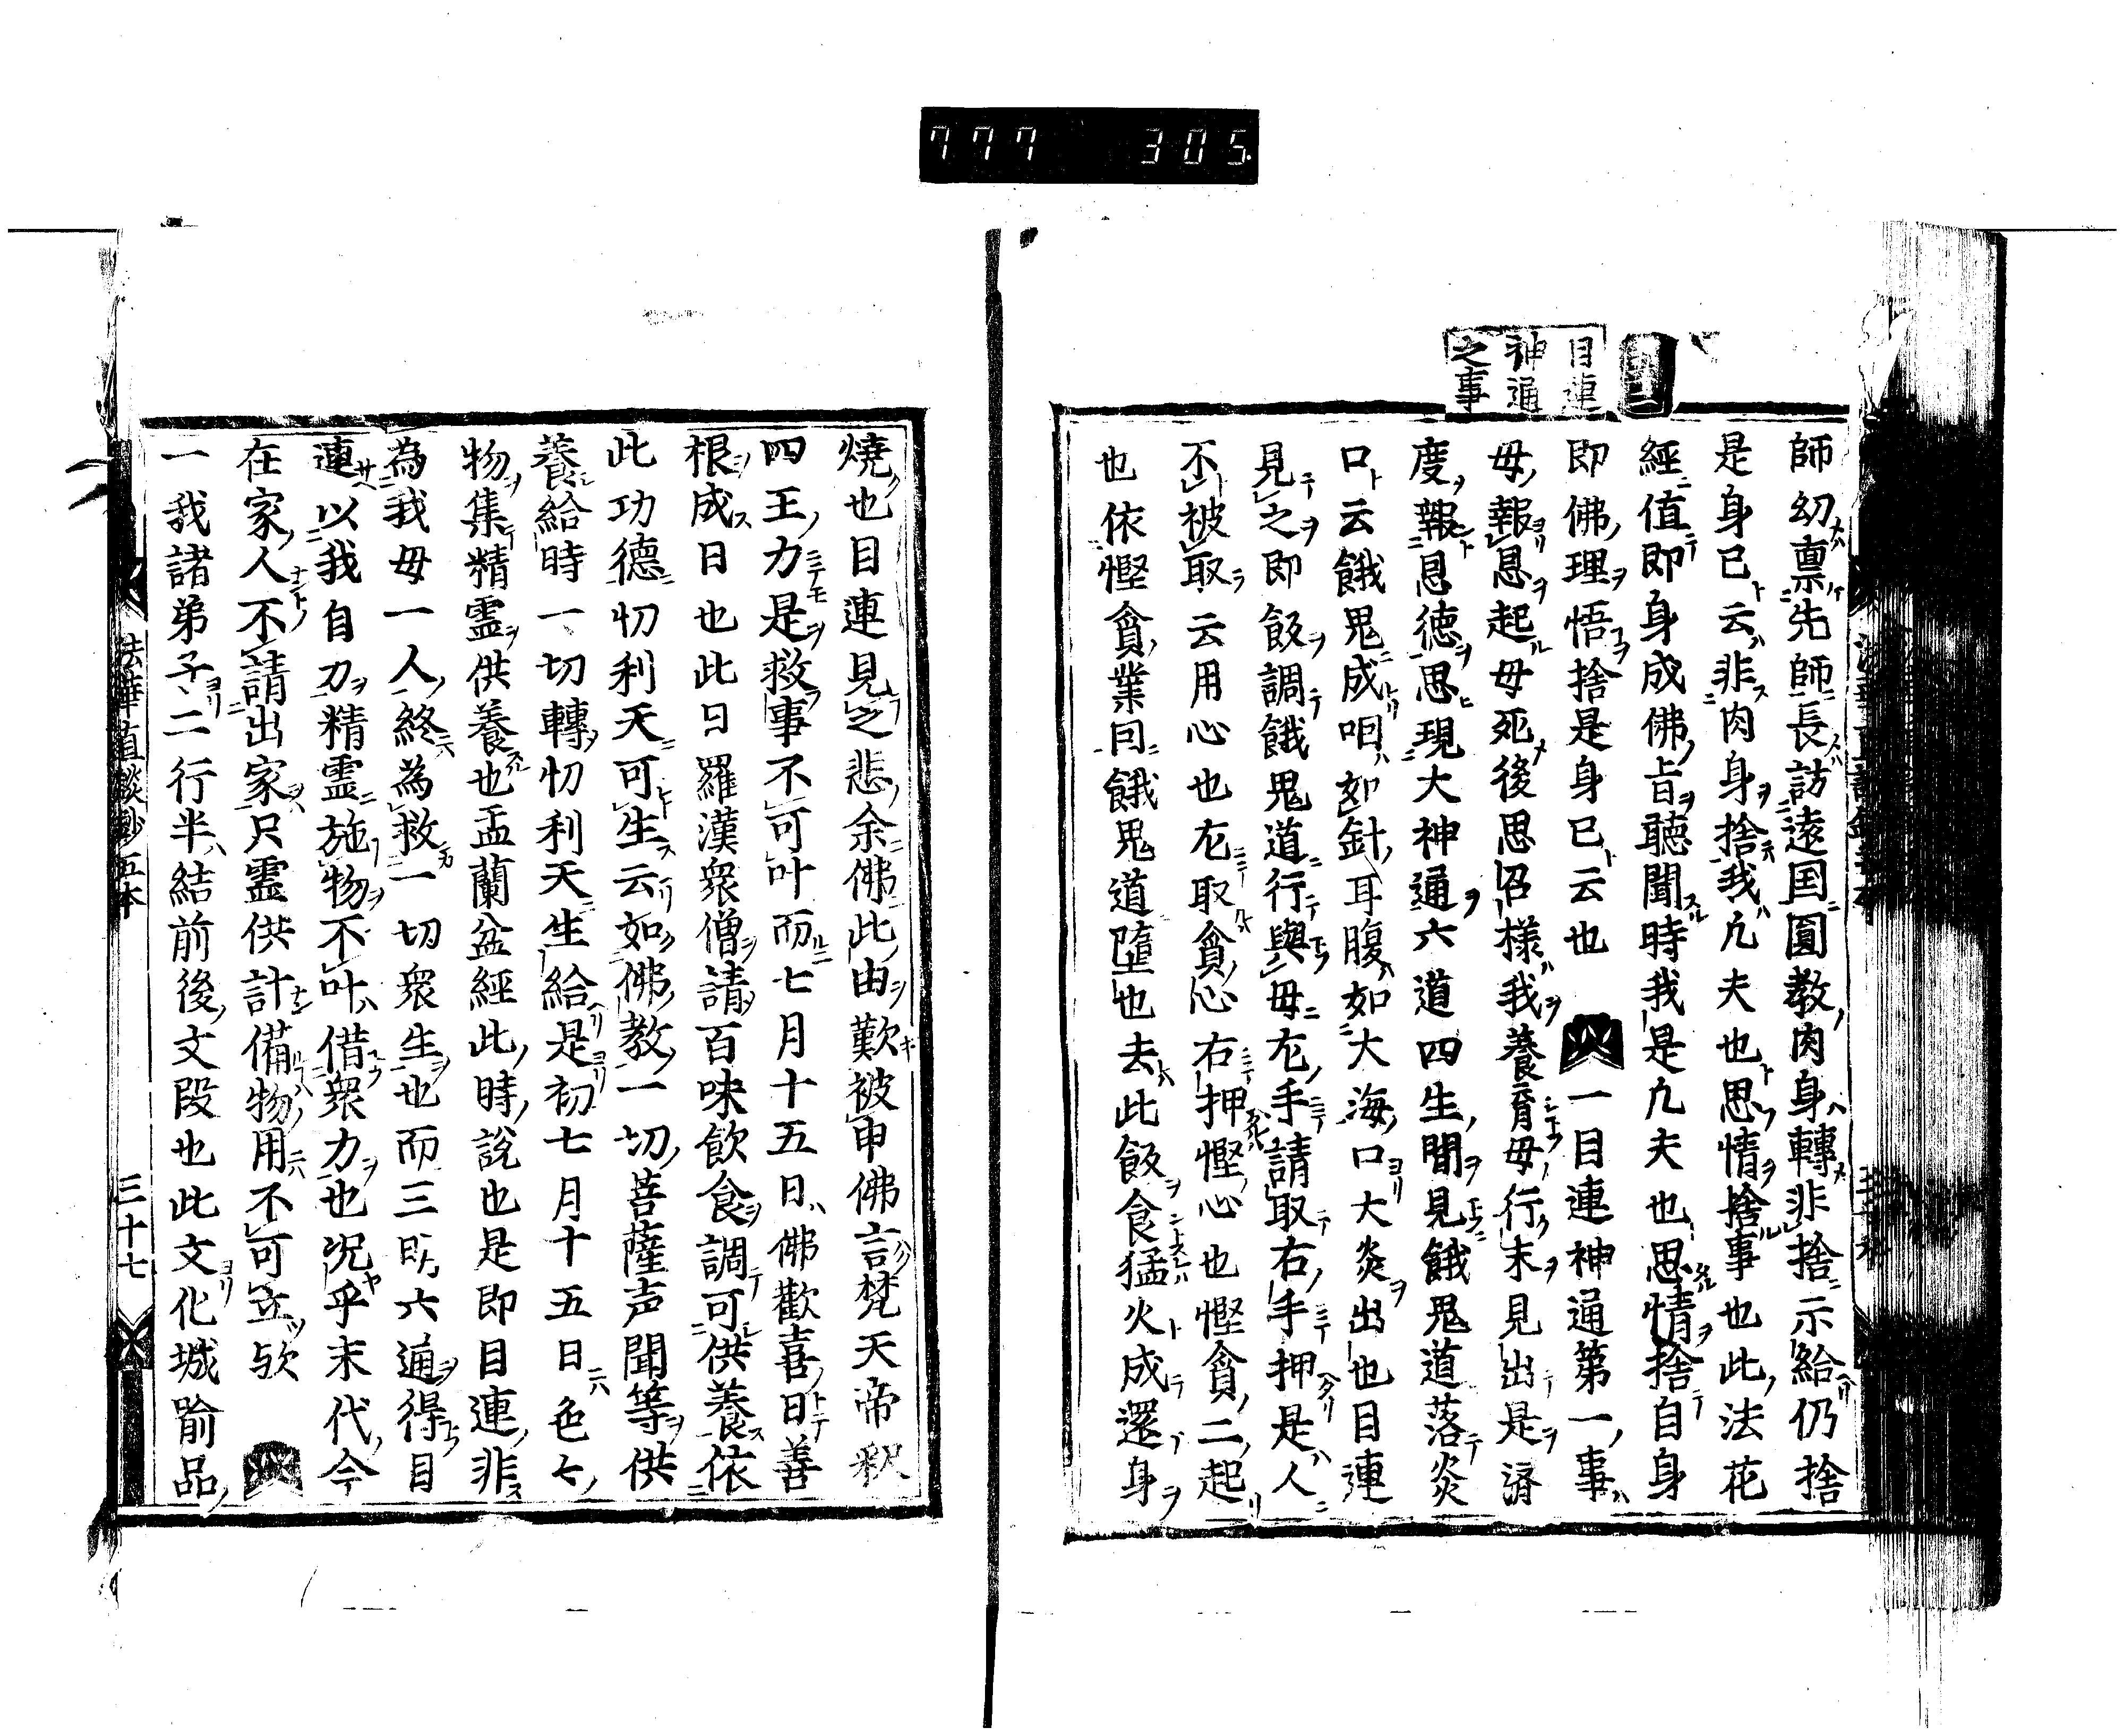 777 305
目連
神通
之事
師幼禀先師長訪遠国圓教肉身轉非捨示給仍捨
是身已云非肉身捨我凢夫也思情捨事也此法花
經値即身成佛旨聴聞時我是凢夫也思情捨自身
即佛理悟捨是身已云也 一目連神通第一事
母報恩起母死後思召様我養育母行末見出是済
度報恩徳思現大神通六道四生間見餓鬼道落炎
口云餓鬼成咽如針耳腹如大海口大炎出也目連
見之即飯調餓鬼道行與母左手請取右手押是人
不被取云用心也左取貪心右押慳心也慳貪二起
也依慳貪業同餓鬼道墮也去此飯食猛火成還身
焼也目連見之悲余佛此由歎被申佛言梵天帝釈
四王力是救事不可叶而七月十五日佛歡喜日善
根成日也此日羅漢衆僧請百味飲食調可供養依
此功德忉利天可生云如佛教一切菩薩声聞等供
養給時一切轉忉利天生給是初七月十五日色々
物集精霊供養也盂蘭盆經此時說也是即目連非
為我母一人終為救一切衆生也而三明六通得目
連以我自力精霊施物不叶借衆力也况乎末代今
在家人不請出家只霊供計備物用不可立欤
一我諸弟子二行半結前後文段也此文化城喻品
法華直談鈔五本 三十七